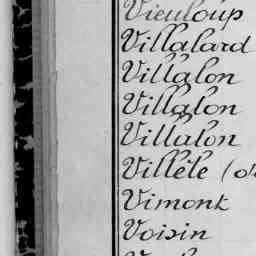 Vieuloup
Villalard
Villalon
Villalon
Villalon
Villèle (
Vimont
Voisin